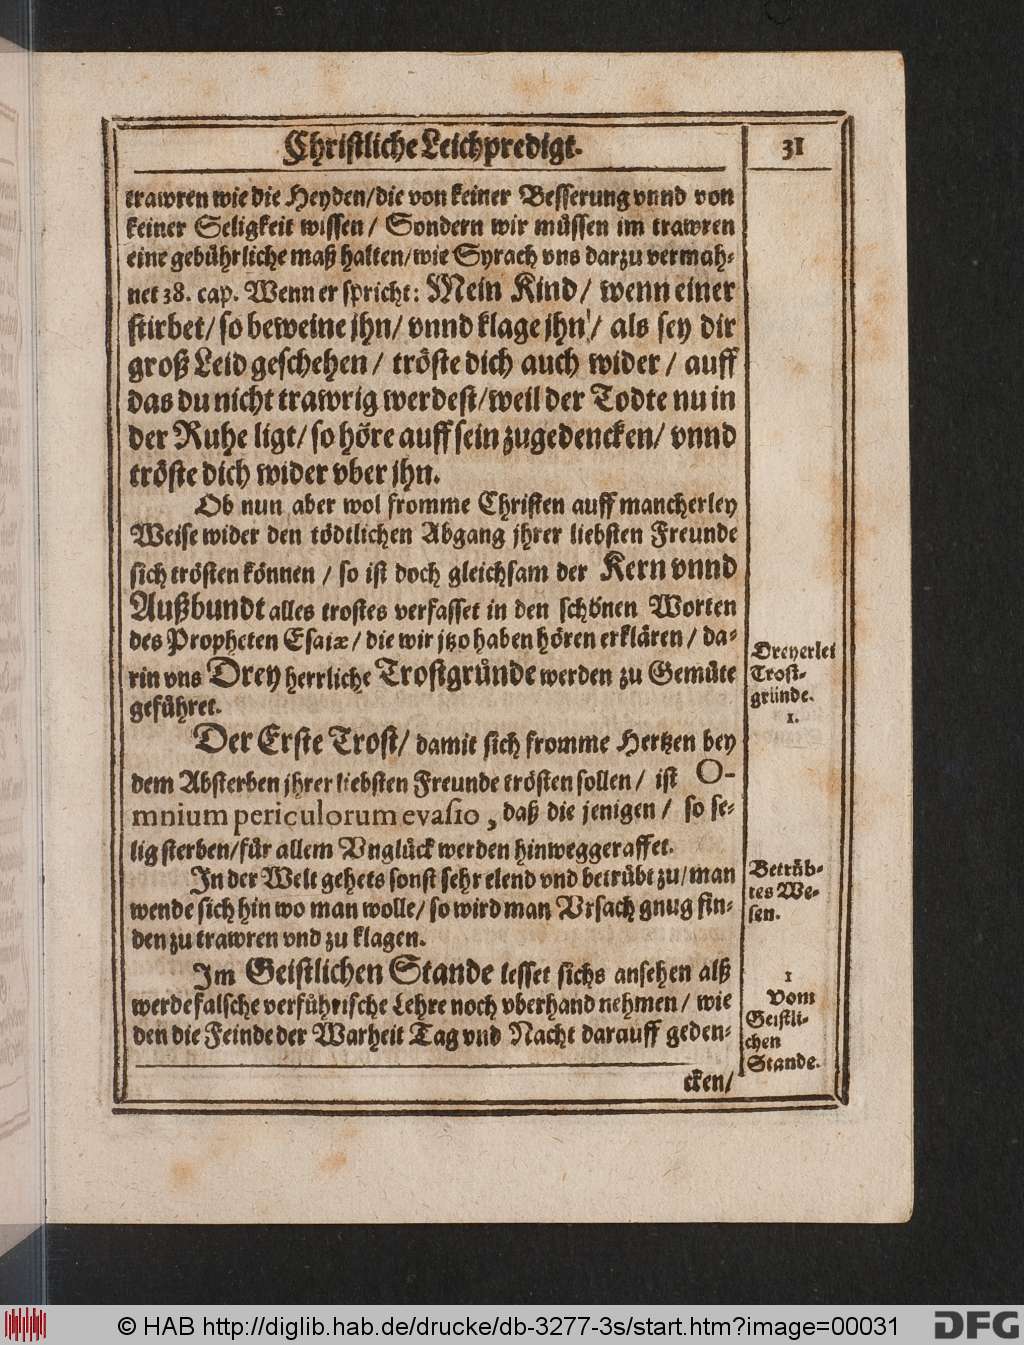 Christliche Leichpredigt.
31
trawren wie die Heyden/die von keiner Besserung vnnd von
keiner Seligkeit wissen / Sondern wir müssen im trawren
eine gebührliche maß halten/wie Syrach vns darzu vermah-
net 38. cap. Wenn er spricht: Mein Kind/ wenn einer
stirbet/ so beweine jhn/ vnnd klage jhn / als sey dir
groß Leid geschehen / tröste dich auch wider / auff
das du nicht trawrig werdest/weil der Todte nu in
der Ruhe ligt/ so höre auff sein zugedencken/ vnnd
tröste dich wider vber jhn.
Ob nun aber wol fromme Christen auff mancherley
Weise wider den tödtlichen Abgang jhrer liebsten Freunde
sich trösten können / so ist doch gleichsam der Kern vnnd
Außbundt alles trostes verfasset in den schönen Worten
des Propheten Esaiæ/ die wir jtzo haben hören erklären/ da-
rin vns Drey herrliche Trostgründe werden zu Gemüte
geführet.
Dreyerlei
Trost-
gründe.
1.
Der Erste Trost/ damit sich fromme Hertzen bey
dem Absterben jhrer liebsten Freunde trösten sollen/ ist O-
mnium periculorum evasio, daß die jenigen / so se-
lig sterben/für allem Vnglück werden hinweggeraffet.
In der Welt gehets sonst sehr elend vnd betrübt zu/man
wende sich hin wo man wolle/ so wird man Vrsach gnug fin-
den zu trawren vnd zu klagen.
Betrüb-
tes We-
sen.
Im Geistlichen Stande lesset sichs ansehen alß
werde falsche verführische Lehre noch vberhand nehmen/ wie
den die Feinde der Warheit Tag vnd Nacht darauff geden-
1
Vom
Geistli-
chen
Stande.
cken/
© HAB http://diglib.hab.de/drucke/db-3277-3s/start.htm?image=00031
DFG